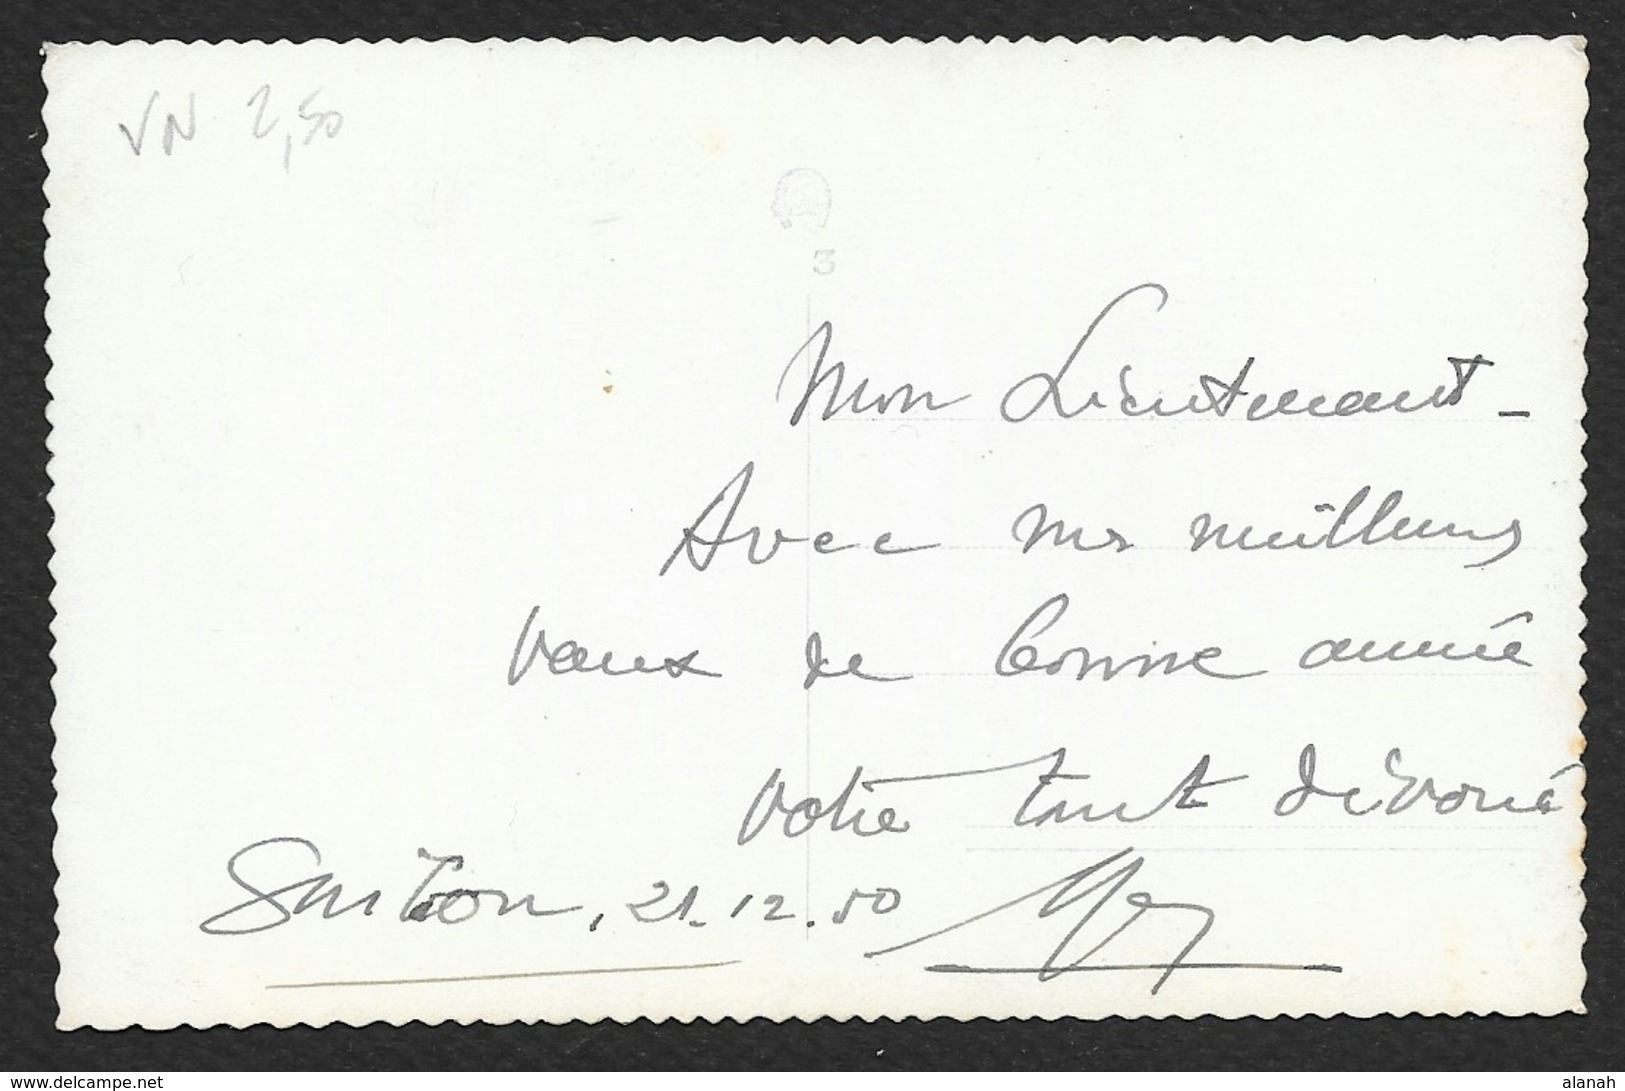 VN 2,50
3
Mon Lieutenant -
Avec mes meilleurs
vœux de bonne année
votre tout dévoué
21.12.50
www.delcampe.net
alanah